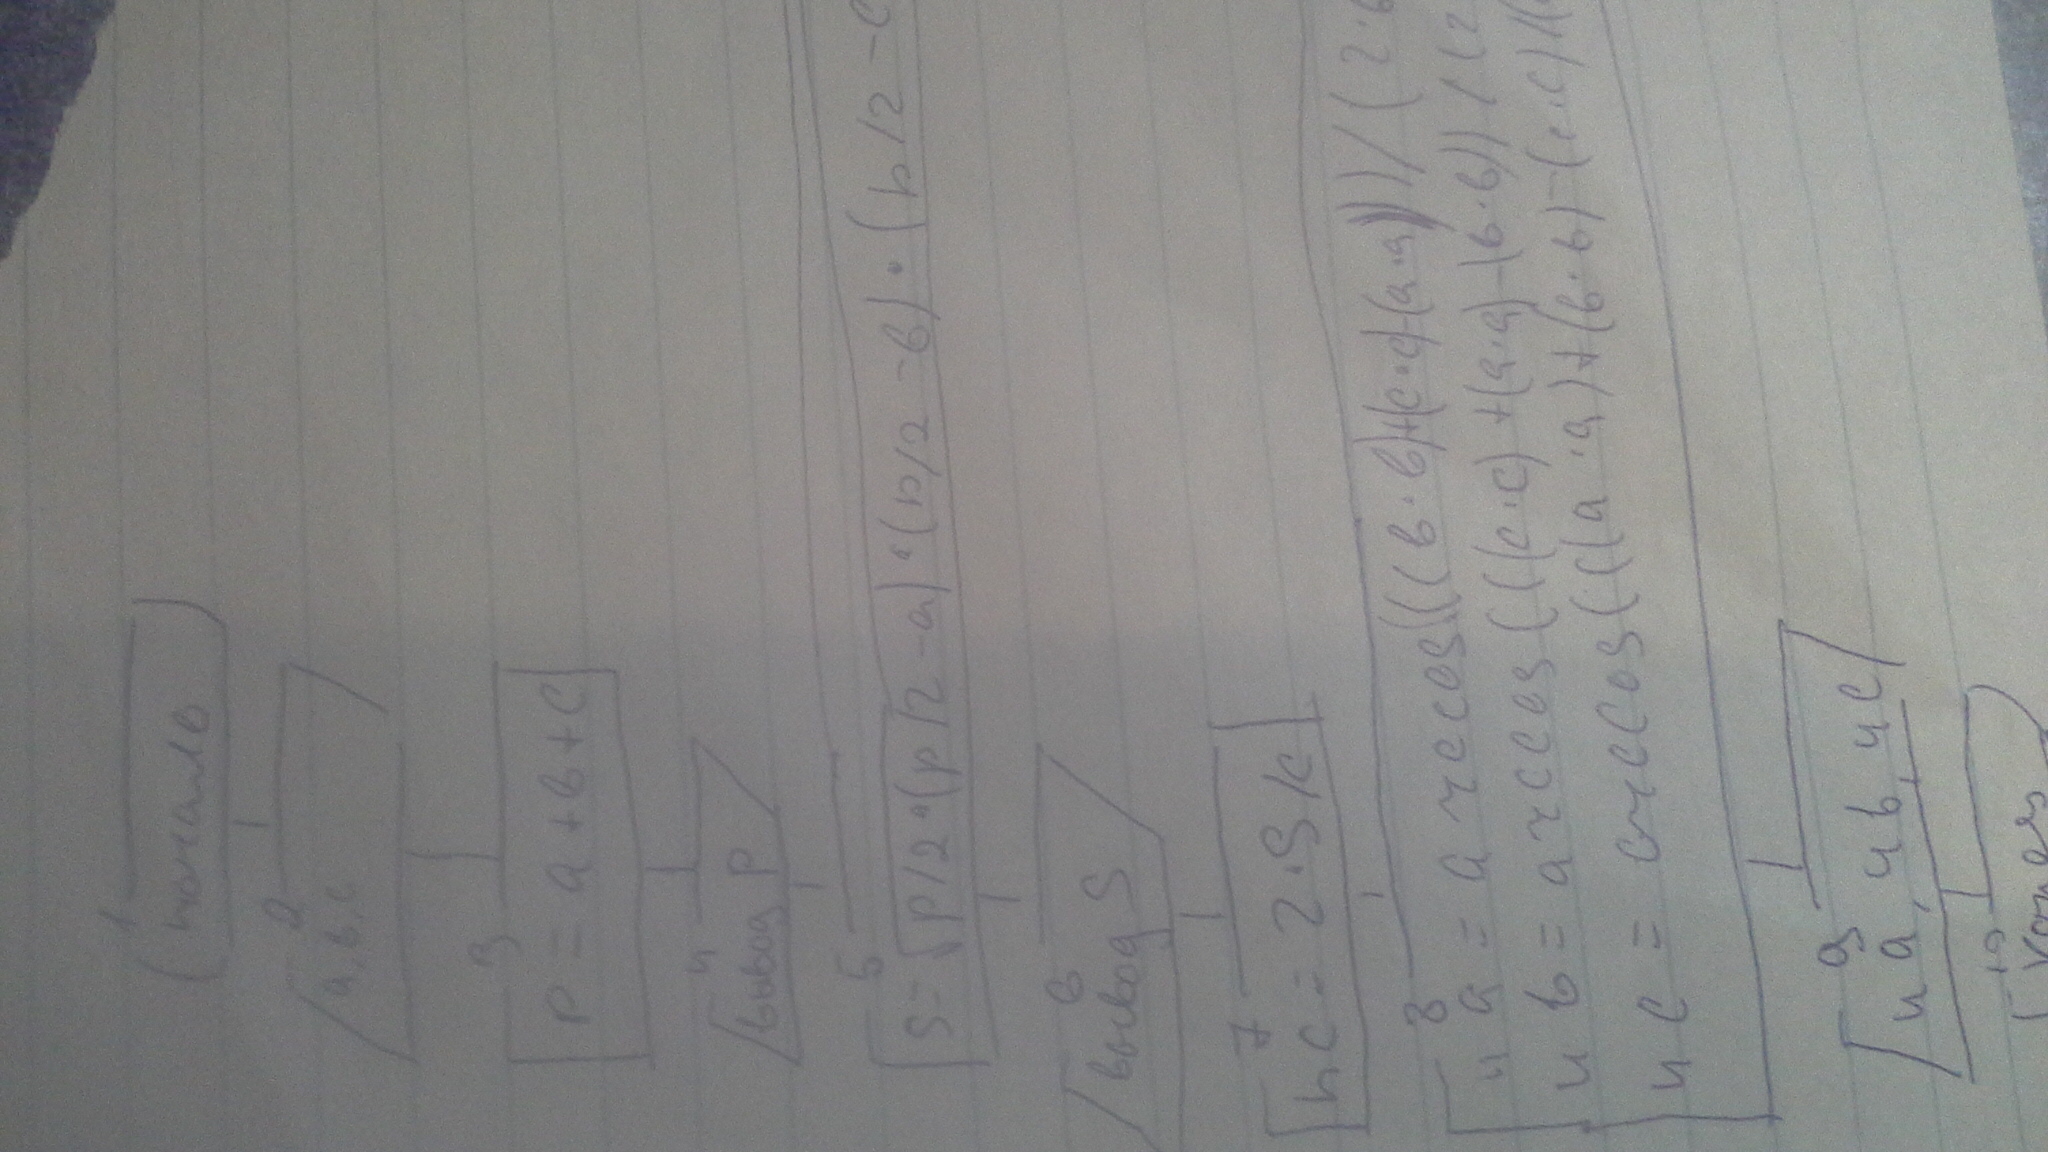 1
начало
2
a, b, c
3
P = a + b + c
4
вывод P
5
S = √P/2 · (P/2 - a) · (p/2 - b) · (p/2 - c
6
вывод S
7
hc = 2 · S / c
8
ua = arccos(((b · b) + (c · c) - (a · a)) / (2 · b
ub = arccos(((c · c) + (a · a) - (b · b)) / (2
uc = arccos(((a · a) + (b · b) - (c · c) / (
9
ua, ub, uc
10
конец